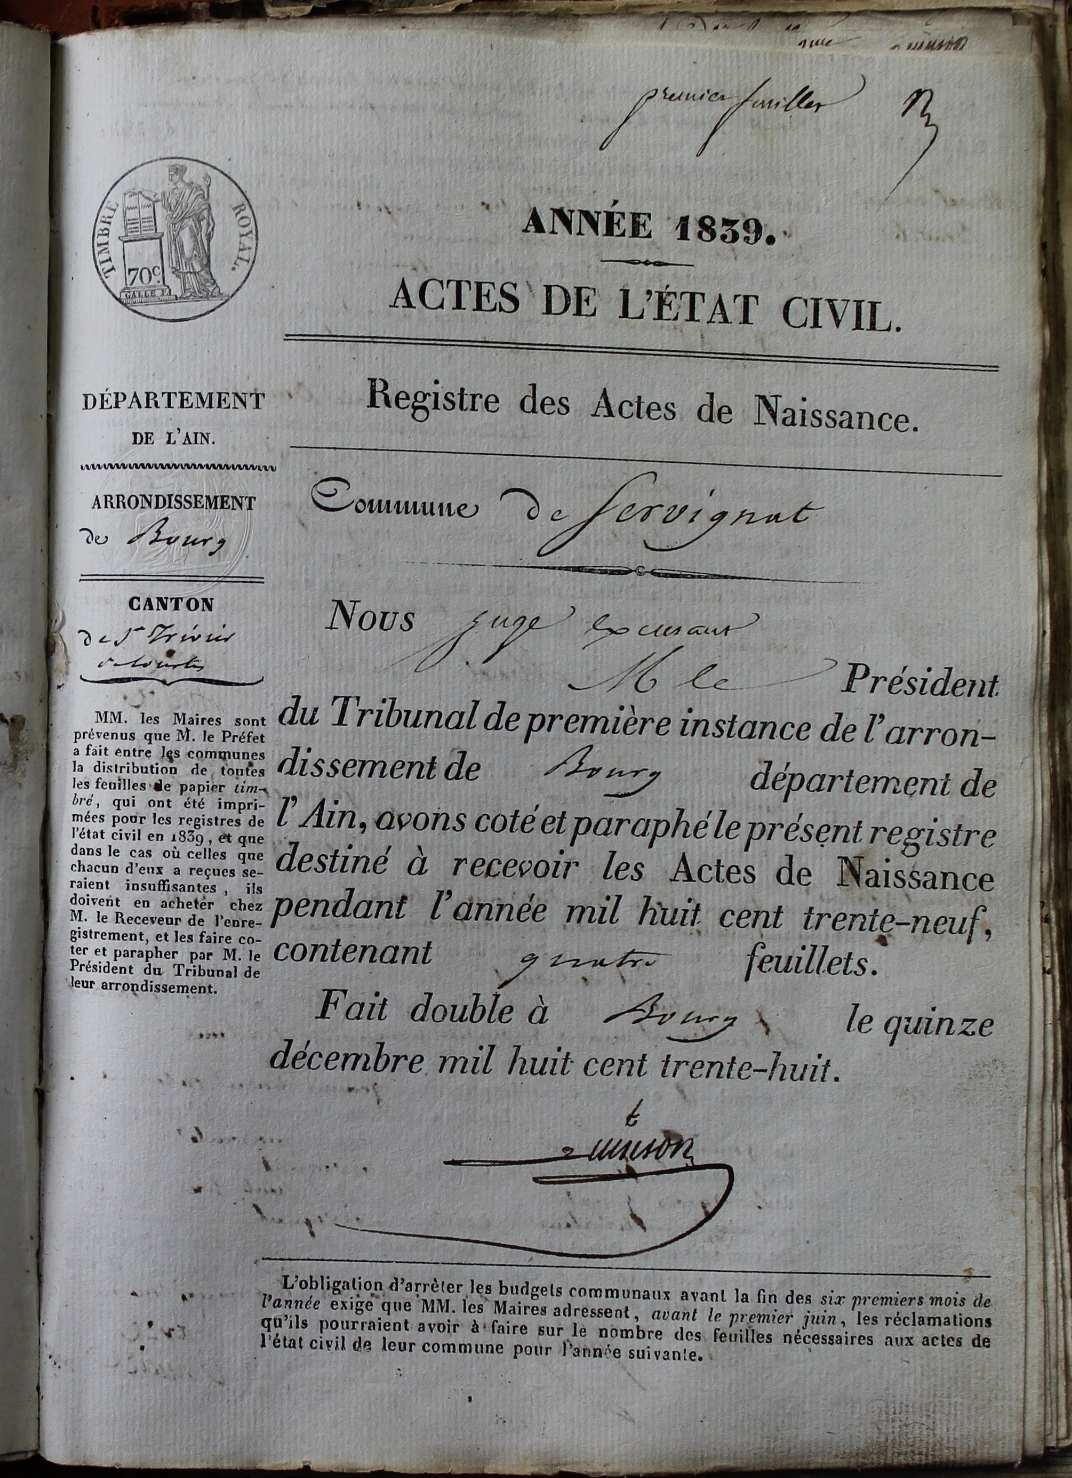 premier feuillet
TIMBRE ROYAL.
70c
ANNÉE 1839.
ACTES DE L'ÉTAT CIVIL.
DÉPARTEMENT
DE L'AIN.
ARRONDISSEMENT
de Bourg
CANTON
de St Trivier
de Courtes
MM. les Maires sont
prévenus que M. le Préfet
a fait entre les communes
la distribution de toutes
les feuilles de papier tim-
bré, qui ont été impri-
mées pour les registres de
l'état civil en 1839, et que
dans le cas où celles que
chacun d'eux a reçues se-
raient insuffisantes, ils
doivent en acheter chez
M. le Receveur de l'enre-
gistrement, et les faire co-
ter et parapher par M. le
Président du Tribunal de
leur arrondissement.
Registre des Actes de Naissance.
Commune de Servignat
Nous juge excusant
M le Président
du Tribunal de première instance de l'arron-
dissement de Bourg département de
l'Ain, avons coté et paraphé le présent registre
destiné à recevoir les Actes de Naissance
pendant l'année mil huit cent trente-neuf,
contenant quatre feuillets.
Fait double à Bourg le quinze
décembre mil huit cent trente-huit.
L'obligation d'arrêter les budgets communaux avant la fin des six premiers mois de
l'année exige que MM. les Maires adressent, avant le premier juin, les réclamations
qu'ils pourraient avoir à faire sur le nombre des feuilles nécessaires aux actes de
l'état civil de leur commune pour l'année suivante.